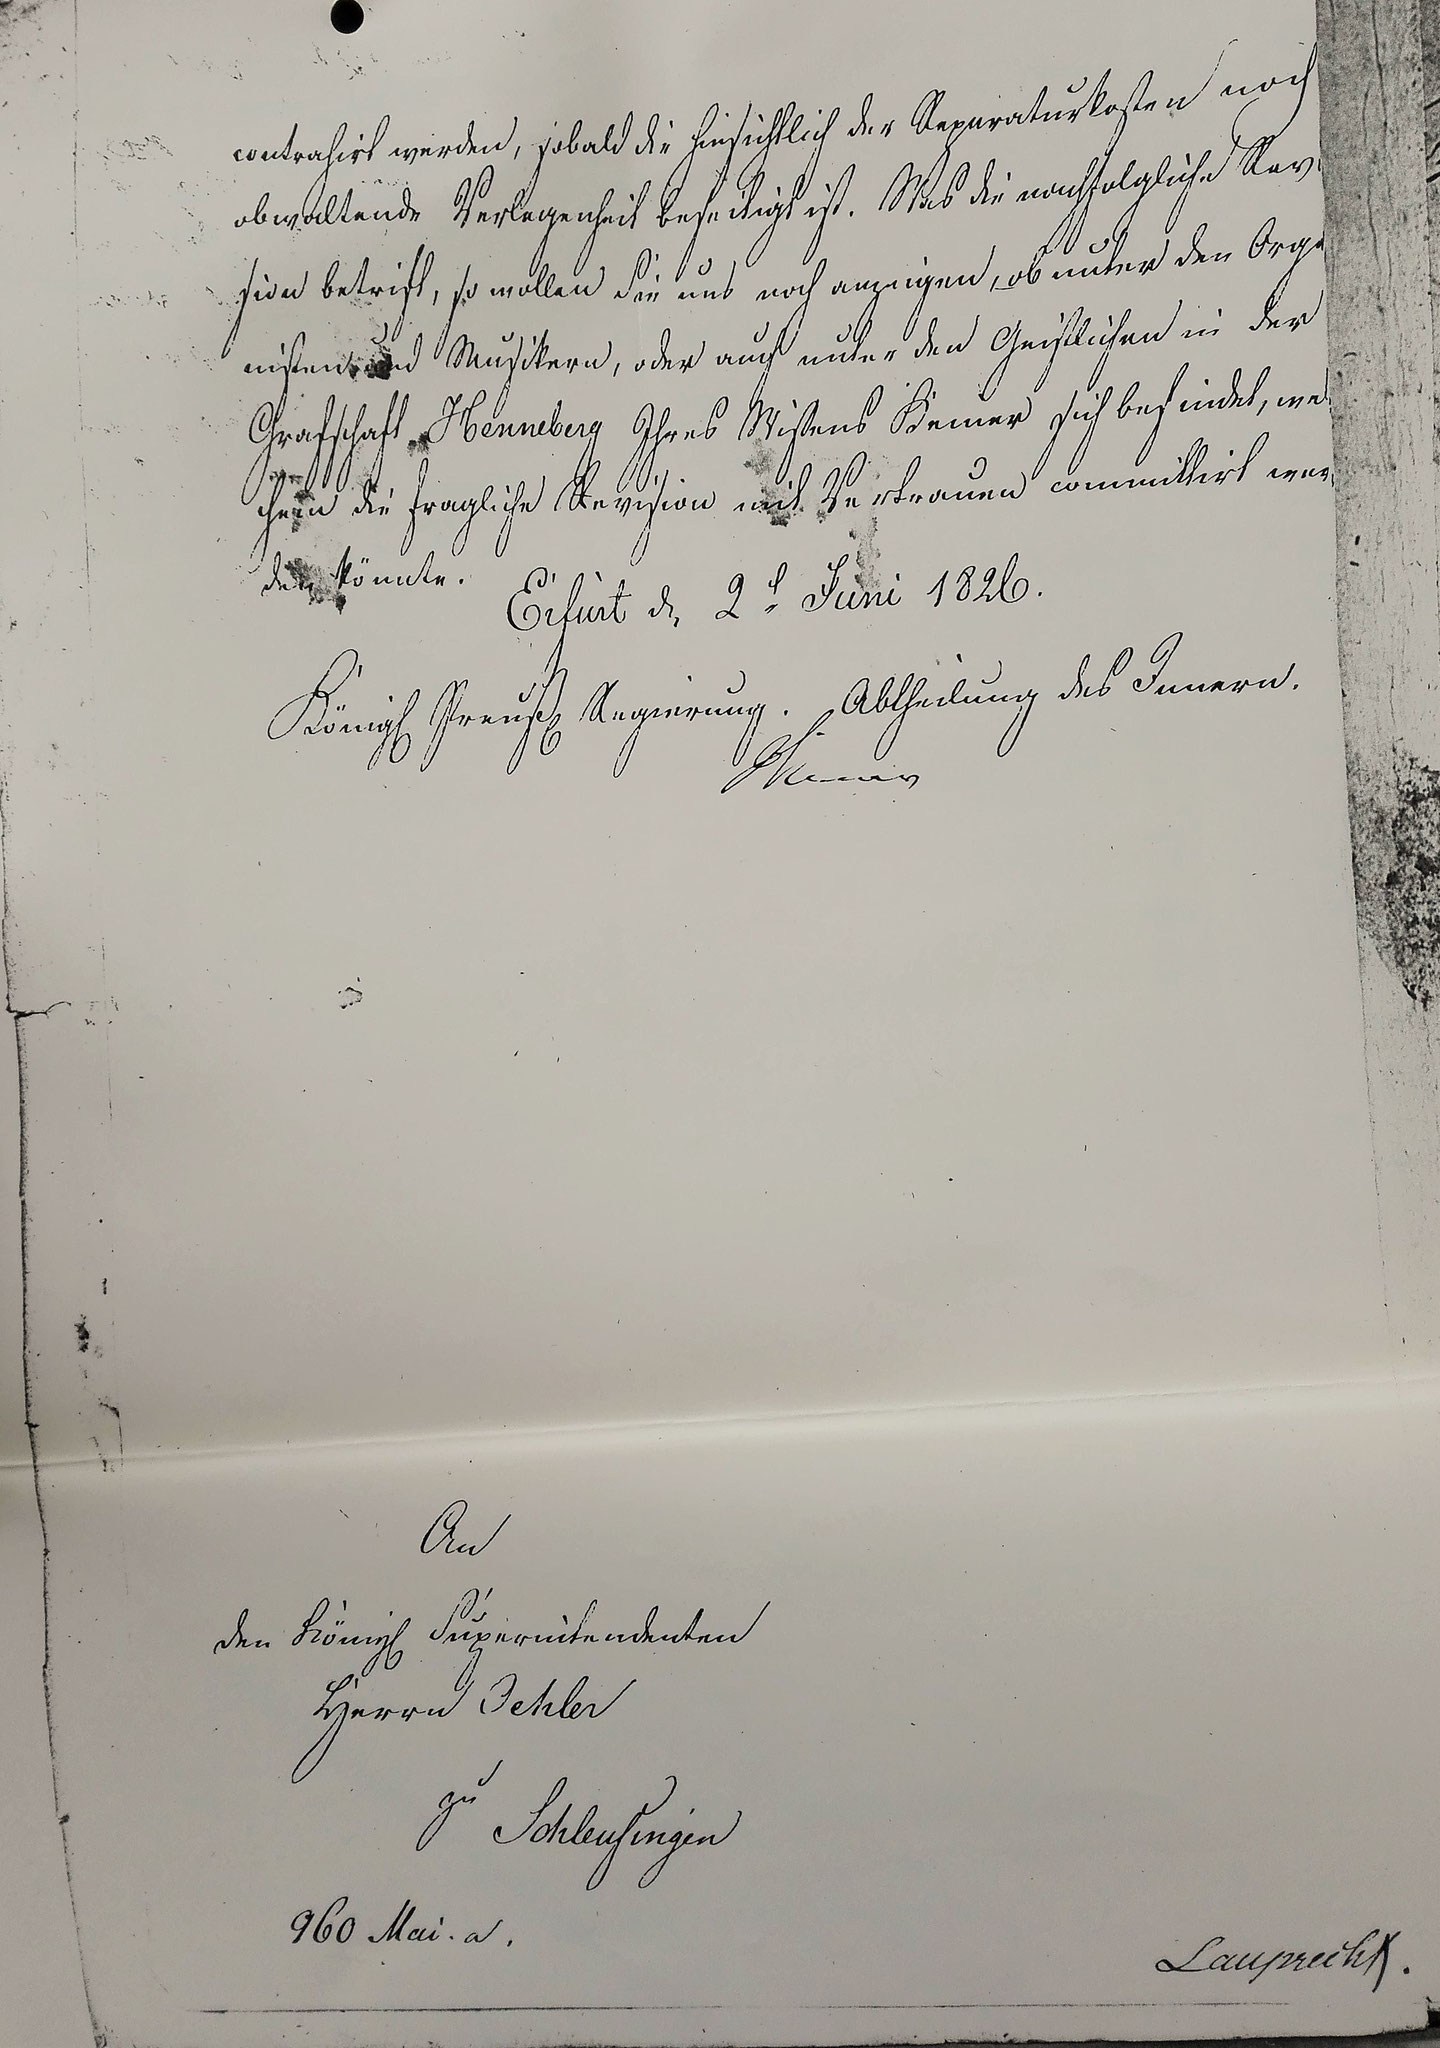 contrahirt werden, sobald die hinsichtlich der Reparaturkosten noch
obwaltende Verlegenheit beseitigt ist. Was die nachfolgliche Rev
sion betrift, so wollen Sie uns noch anzeigen, ob unter den Orga
nisten und Musikern, oder auch unter den Geistlichen in der
Grafschaft Henneberg Ihres Wissens Keiner sich befindet, we
chem die fragliche Revision mit Vertrauen committirt wer
den könnte.
Erfurt d. 2t Juni 1826.
Königl Preuß Regierung. Abtheilung des Innern.
An
den Königl Superintendenten
Herrn Oehler
zu
Schleusingen
960 Mai. a.
Lauprecht.